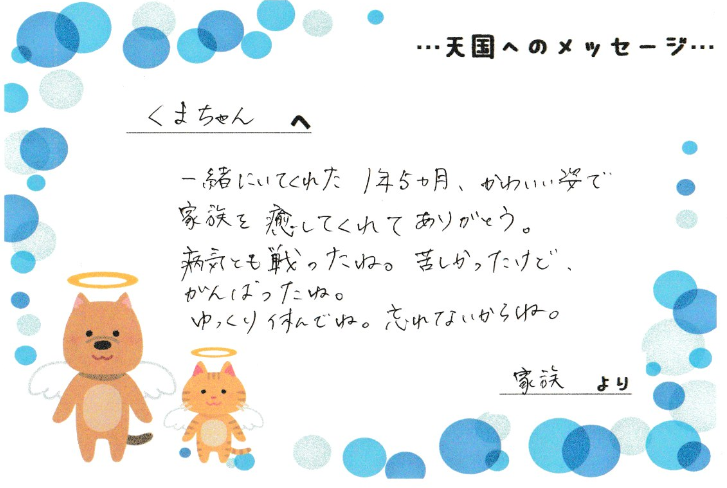 …天国へのメッセージ…
くまちゃん へ
一緒にいてくれた 1年5ヵ月、かわいい姿で
家族を癒してくれてありがとう。
病気とも戦ったね。苦しかったけど、
がんばったね。
ゆっくり休んでね。忘れないからね。
家族 より